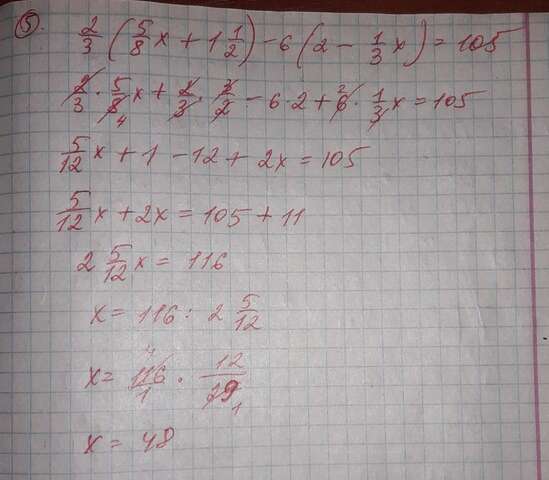 5. 2/3 (5/8 x + 1 1/2) - 6 (2 - 1/3 x) = 105
2/3 · 5/8 4 x + 2/3 · 3/2 - 6 · 2 + 2 6 · 1/3 x = 105
5/12 x + 1 - 12 + 2x = 105
5/12 x + 2x = 105 + 11
2 5/12 x = 116
x = 116 : 2 5/12
x = 4 116/1 · 12/29 1
x = 48